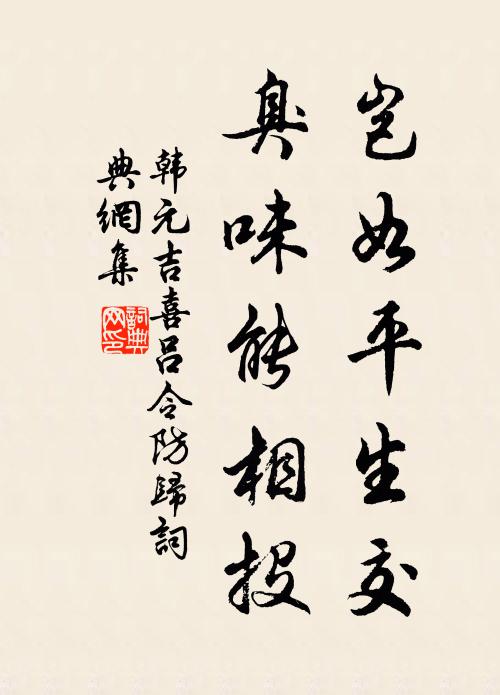 岂如平生交
臭味能相投
韩元吉喜吕令防歸詞
典網集
詞典
网印